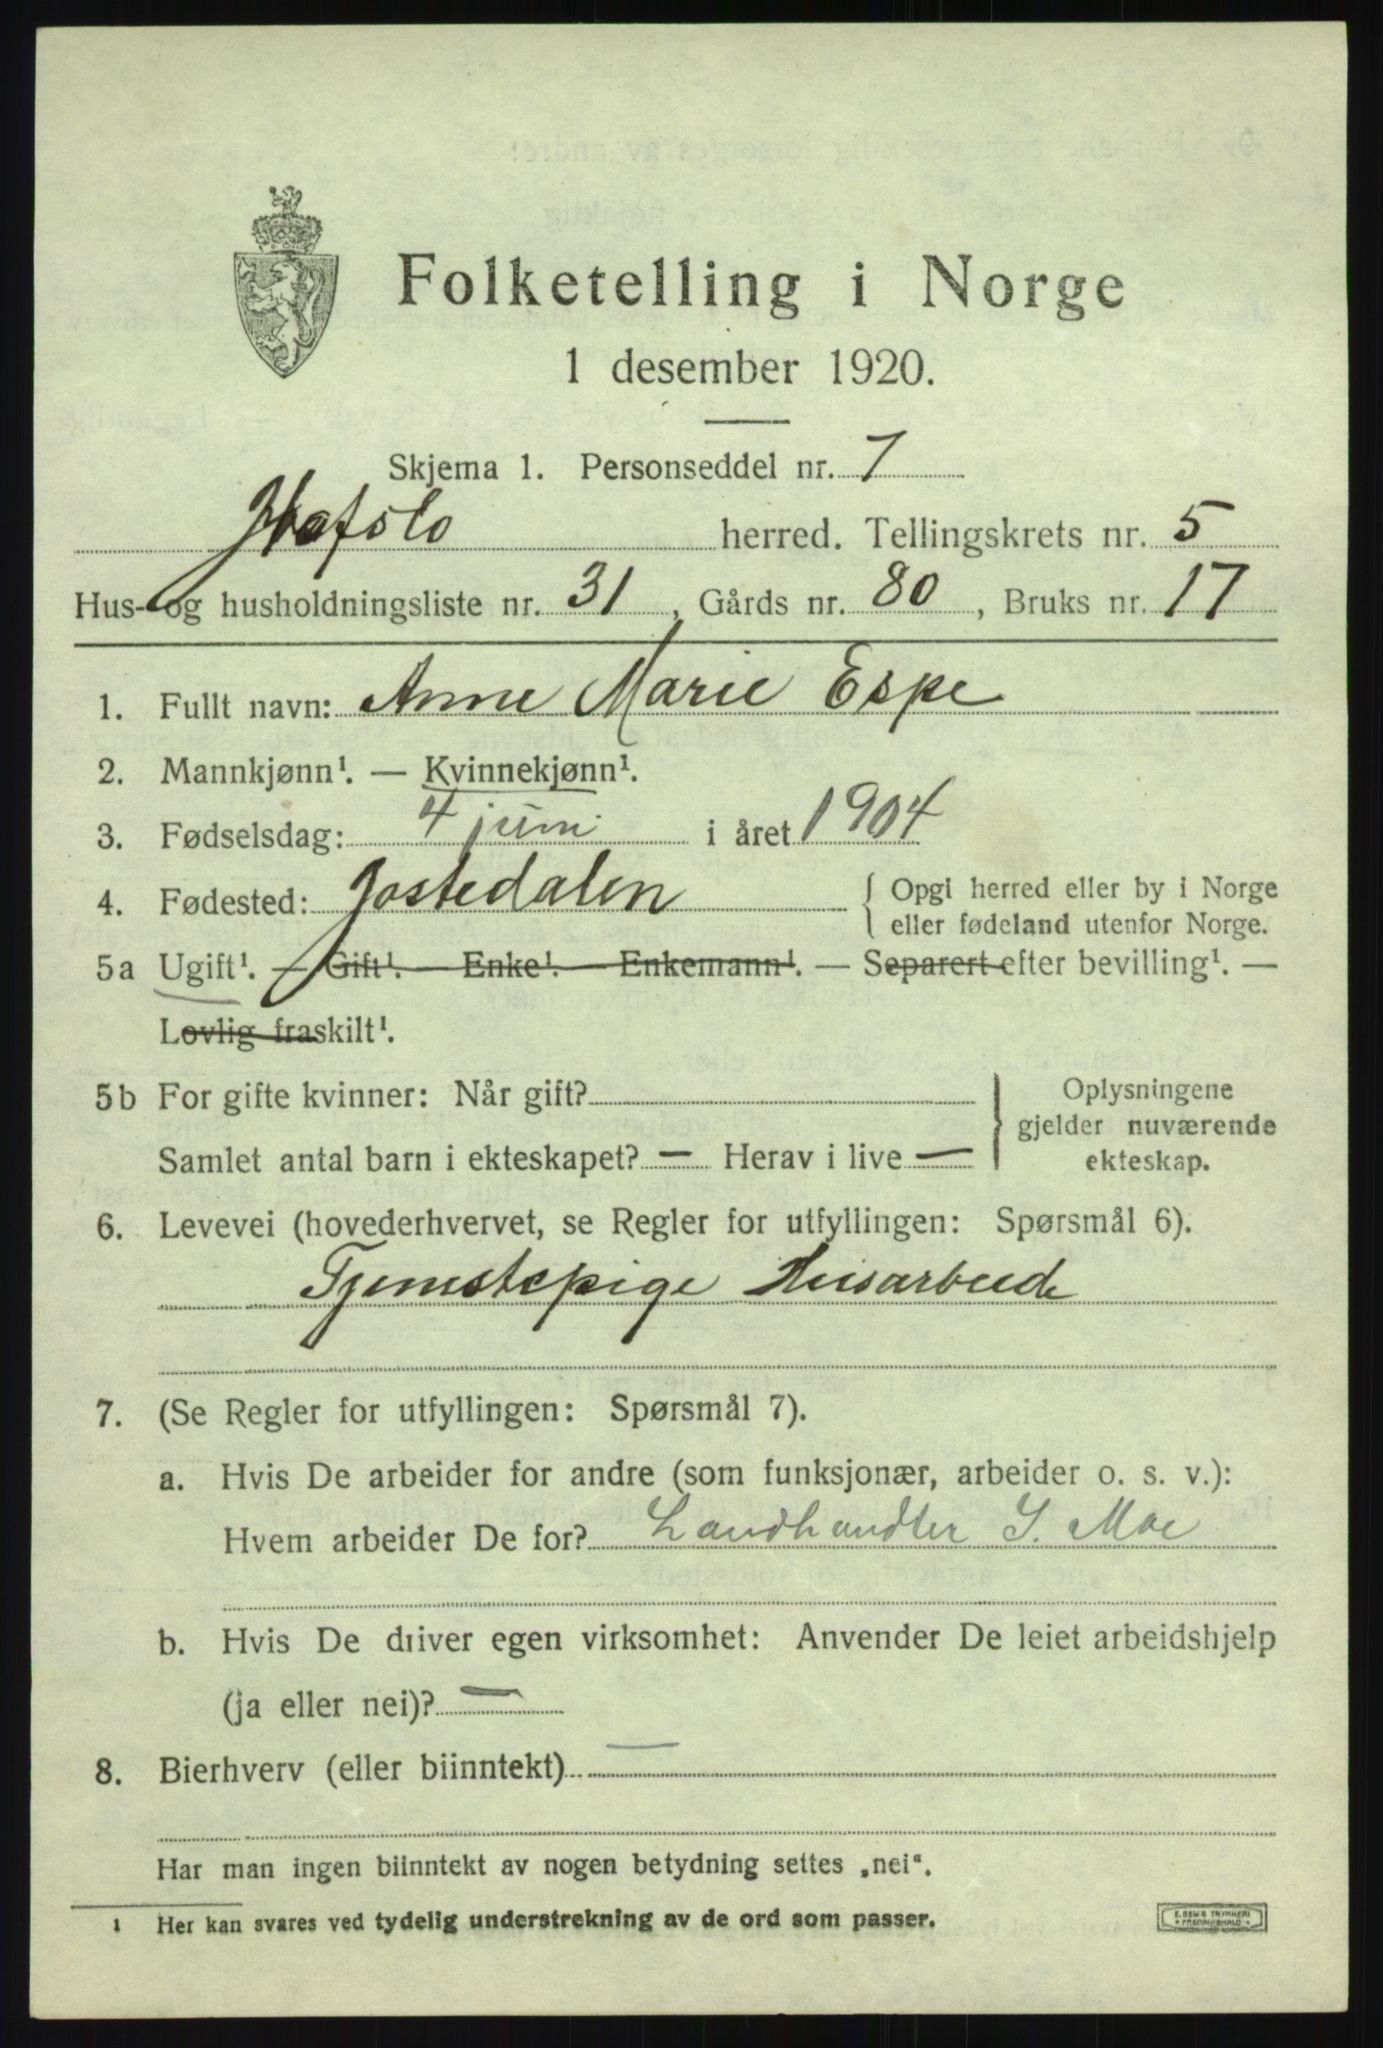 Folketelling i Norge
1 desember 1920.
Skjema 1. Personseddel nr. 7
Hafslo herred. Tellingskrets nr. 5
Hus- og husholdningsliste nr. 31, Gårds nr. 80, Bruks nr. 17
1. Fullt navn: Anne Marie Espe
2. Mannkjønn¹. — Kvinnekjønn¹.
3. Fødselsdag: 4 juni i året 1904
4. Fødested: Jostedalen { Opgi herred eller by i Norge
eller fødeland utenfor Norge.
5a Ugift¹. — Gift¹. — Enke¹. — Enkemann¹. — Separert efter bevilling¹. —
Lovlig fraskilt¹.
5b For gifte kvinner: Når gift? } Oplysningene
gjelder nuværende
Samlet antal barn i ekteskapet? — Herav i live —
ekteskap.
6. Levevei (hovederhvervet, se Regler for utfyllingen: Spørsmål 6).
Tjenestepige Husarbeide
7. (Se Regler for utfyllingen: Spørsmål 7).
a. Hvis De arbeider for andre (som funksjonær, arbeider o. s. v.):
Hvem arbeider De for? Landhandler S. Moe
b. Hvis De driver egen virksomhet: Anvender De leiet arbeidshjelp
(ja eller nei)? —
8. Bierhverv (eller biinntekt) —
Har man ingen biinntekt av nogen betydning settes „nei“.
¹ Her kan svares ved tydelig understrekning av de ord som passer.